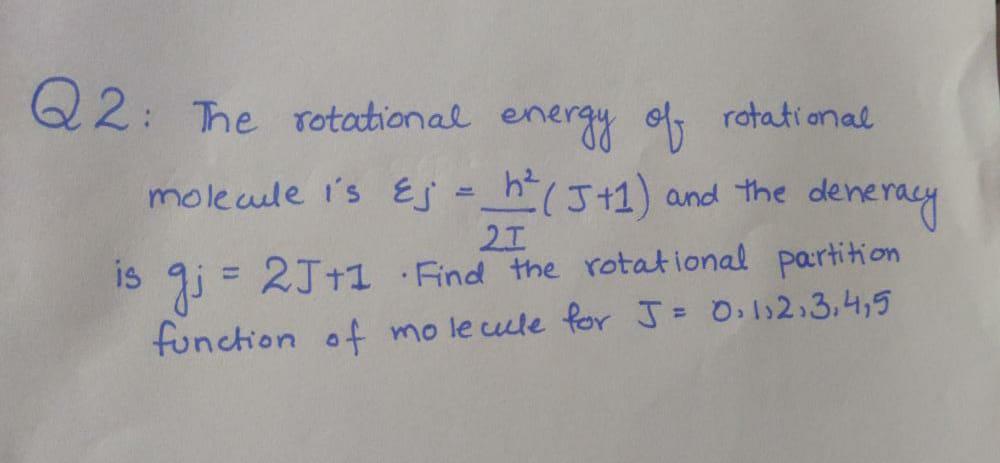 Q2: The rotational energy of rotational
molecule i's Ɛj = h²/2I (J+1) and the deneracy
is gj = 2J+1 . Find the rotational partition
function of molecule for J = 0,1,2,3,4,5